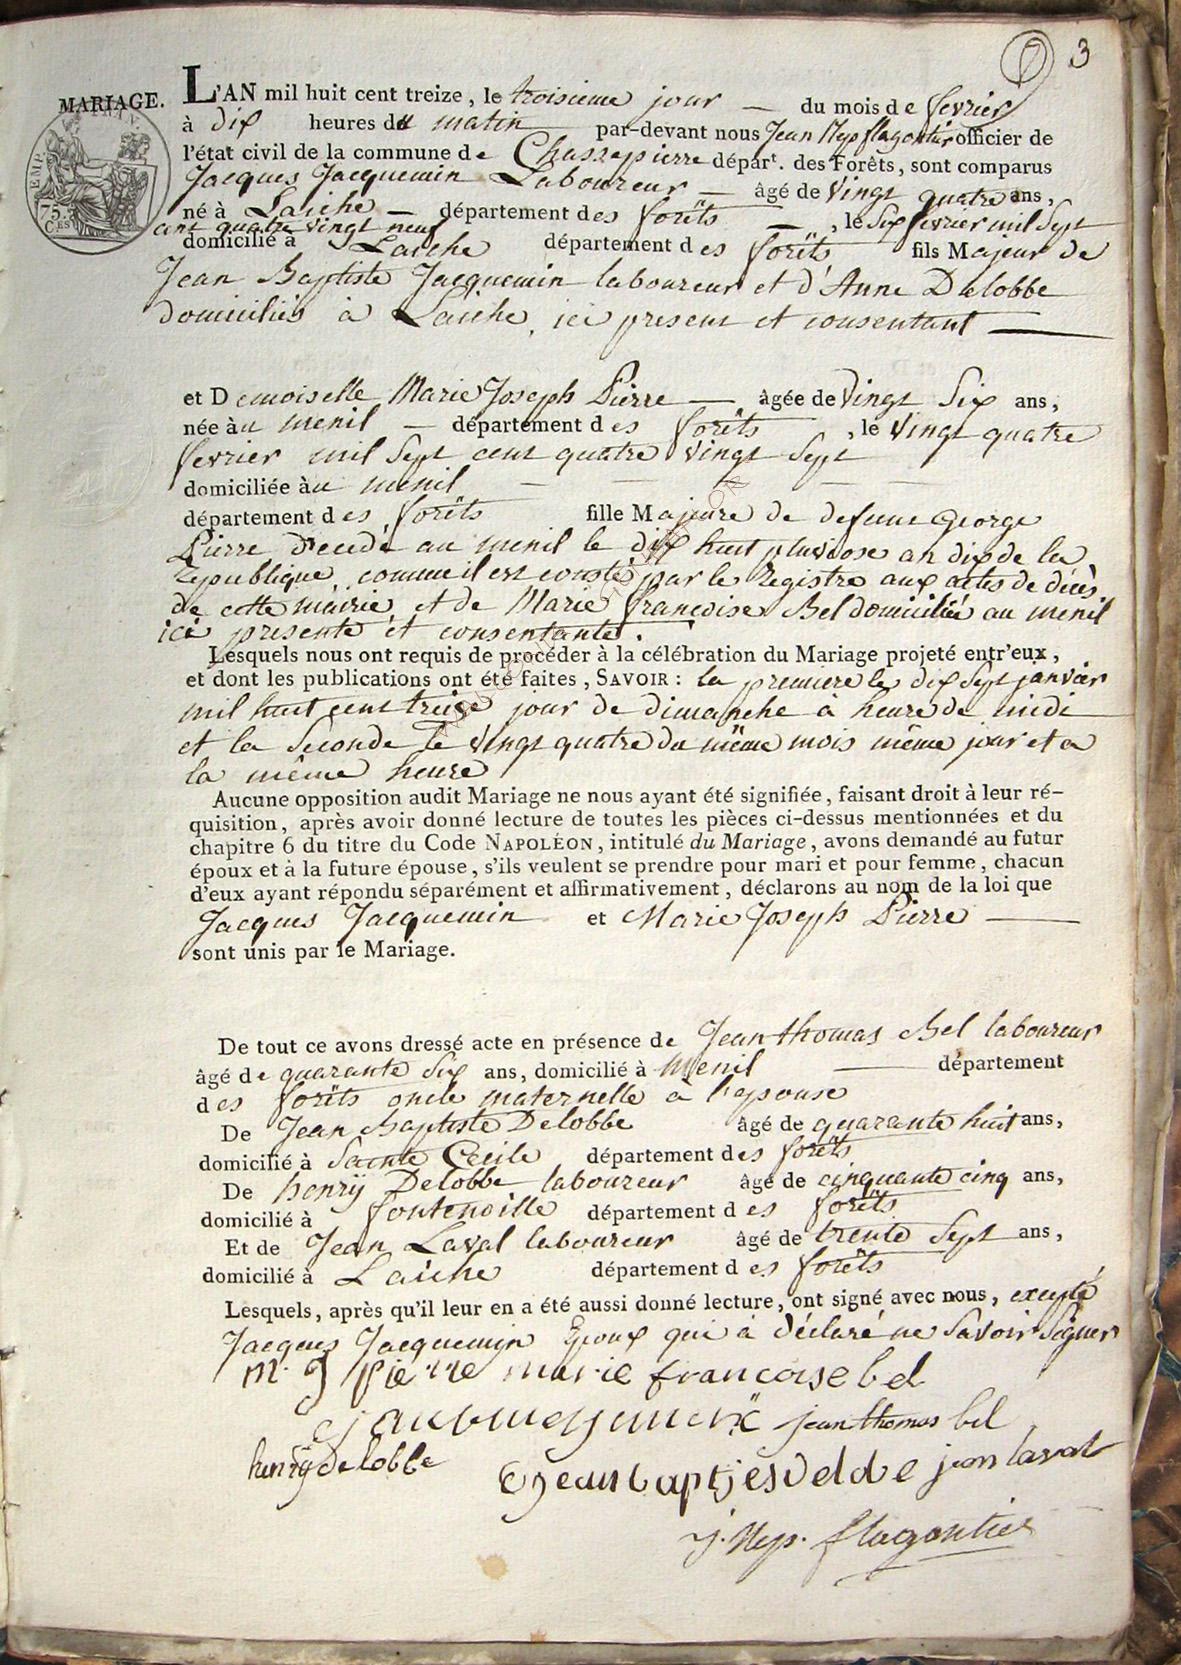 3
MARIAGE.
L'AN mil huit cent treize, le troisieme jour — du mois de fevrier
à dix heures du matin par-devant nous Jean Nep flagontier officier de
l'état civil de la commune de Chassepierre départ. des Forêts, sont comparus
Jacques Jacquemin Laboureur — âgé de Vingt quatre ans,
né à Laiche — département des forêts —, le Six fevrier mil Sept
cent quatre vingt neuf
domicilié à Laiche département des forêts fils Majeur de
Jean Baptiste Jacquemin laboureur et d'Anne Delobbe
domiciliés à Laiche, ici present et consentant —
et Demoiselle Marie Joseph Pierre — âgée de Vingt Six ans,
née au menil — département des forêts, le Vingt quatre
fevrier mil Sept cent quatre vingt Sept
domiciliée au menil — — — —
département des forêts fille Majeure de defunt George
Pierre decedé au menil le dix huit pluviose an dix de la
Republique, comme il est consté par le Registre aux actes de décès
de cette mairie, et de Marie françoise Bel domiciliée au menil
ici presente et consentante.
Lesquels nous ont requis de procéder à la célébration du Mariage projeté entr'eux,
et dont les publications ont été faites, SAVOIR : la premiere le dix Sept janvier
mil huit cent treize jour de dimanche à heure de midi
et la Seconde le vingt quatre du même mois même jour et a
la même heure
Aucune opposition audit Mariage ne nous ayant été signifiée, faisant droit à leur ré-
quisition, après avoir donné lecture de toutes les pièces ci-dessus mentionnées et du
chapitre 6 du titre du Code NAPOLÉON, intitulé du Mariage, avons demandé au futur
époux et à la future épouse, s'ils veulent se prendre pour mari et pour femme, chacun
d'eux ayant répondu séparément et affirmativement, déclarons au nom de la loi que
Jacques Jacquemin et Marie Joseph Pierre —
sont unis par le Mariage.
De tout ce avons dressé acte en présence de Jean thomas Bel laboureur
âgé de quarante Six ans, domicilié à menil — département
des forêts oncle maternelle a l'epouse
De Jean Baptiste Delobbe âgé de quarante huit ans,
domicilié à Sainte Cecile département des forêts
De henrÿ Delobbe laboureur âgé de cinquante cinq ans,
domicilié à fontenoille département des forêts
Et de Jean Laval laboureur âgé de trente Sept ans,
domicilié à Laiche département des forêts
Lesquels, après qu'il leur en a été aussi donné lecture, ont signé avec nous, excepté
Jacques Jacquemin Epoux qui à déclaré ne Savoir Signer
m. J Pierre marie francoise bel
jean thomas bel
henrÿ delobbe jean laval
J. Nep. flagontier